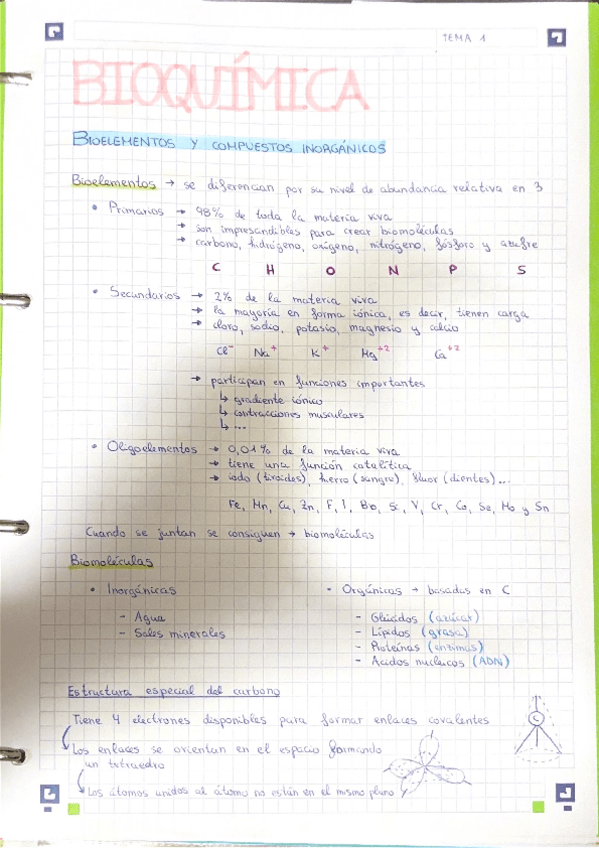 TEMA 1
BIOQUÍMICA
BIOELEMENTOS Y COMPUESTOS INORGÁNICOS
Bioelementos → se diferencian por su nivel de abundancia relativa en 3
• Primarios → 98% de toda la materia viva
→ son imprescindibles para crear biomoléculas
→ carbono, hidrógeno, oxígeno, nitrógeno, fósforo y azufre
C H O N P S
• Secundarios → 2% de la materia viva
→ la mayoría en forma iónica, es decir, tienen carga
→ cloro, sodio, potasio, magnesio y calcio
Cl⁻ Na⁺ K⁺ Mg⁺² Ca⁺²
→ participan en funciones importantes
↳ gradiente iónico
↳ contracciones musculares
↳ ...
• Oligoelementos → 0,01% de la materia viva
→ tiene una función catalítica
→ iodo (tiroides), hierro (sangre), fluor (dientes)...
Fe, Mn, Cu, Zn, F, I, Bo, Si, V, Cr, Co, Se, Mo y Sn
Cuando se juntan se consiguen → biomoléculas
Biomoléculas
• Inorgánicas • Orgánicas → basadas en C
- Agua - Glúcidos (azúcar)
- Sales minerales - Lípidos (grasa)
- Proteínas (enzimas)
- Acidos nucleicos (ADN)
Estructura especial del carbono
Tiene 4 electrones disponibles para formar enlaces covalentes
C
Los enlaces se orientan en el espacio formando
un tetraedro
Los átomos unidos al átomo no están en el mismo plano